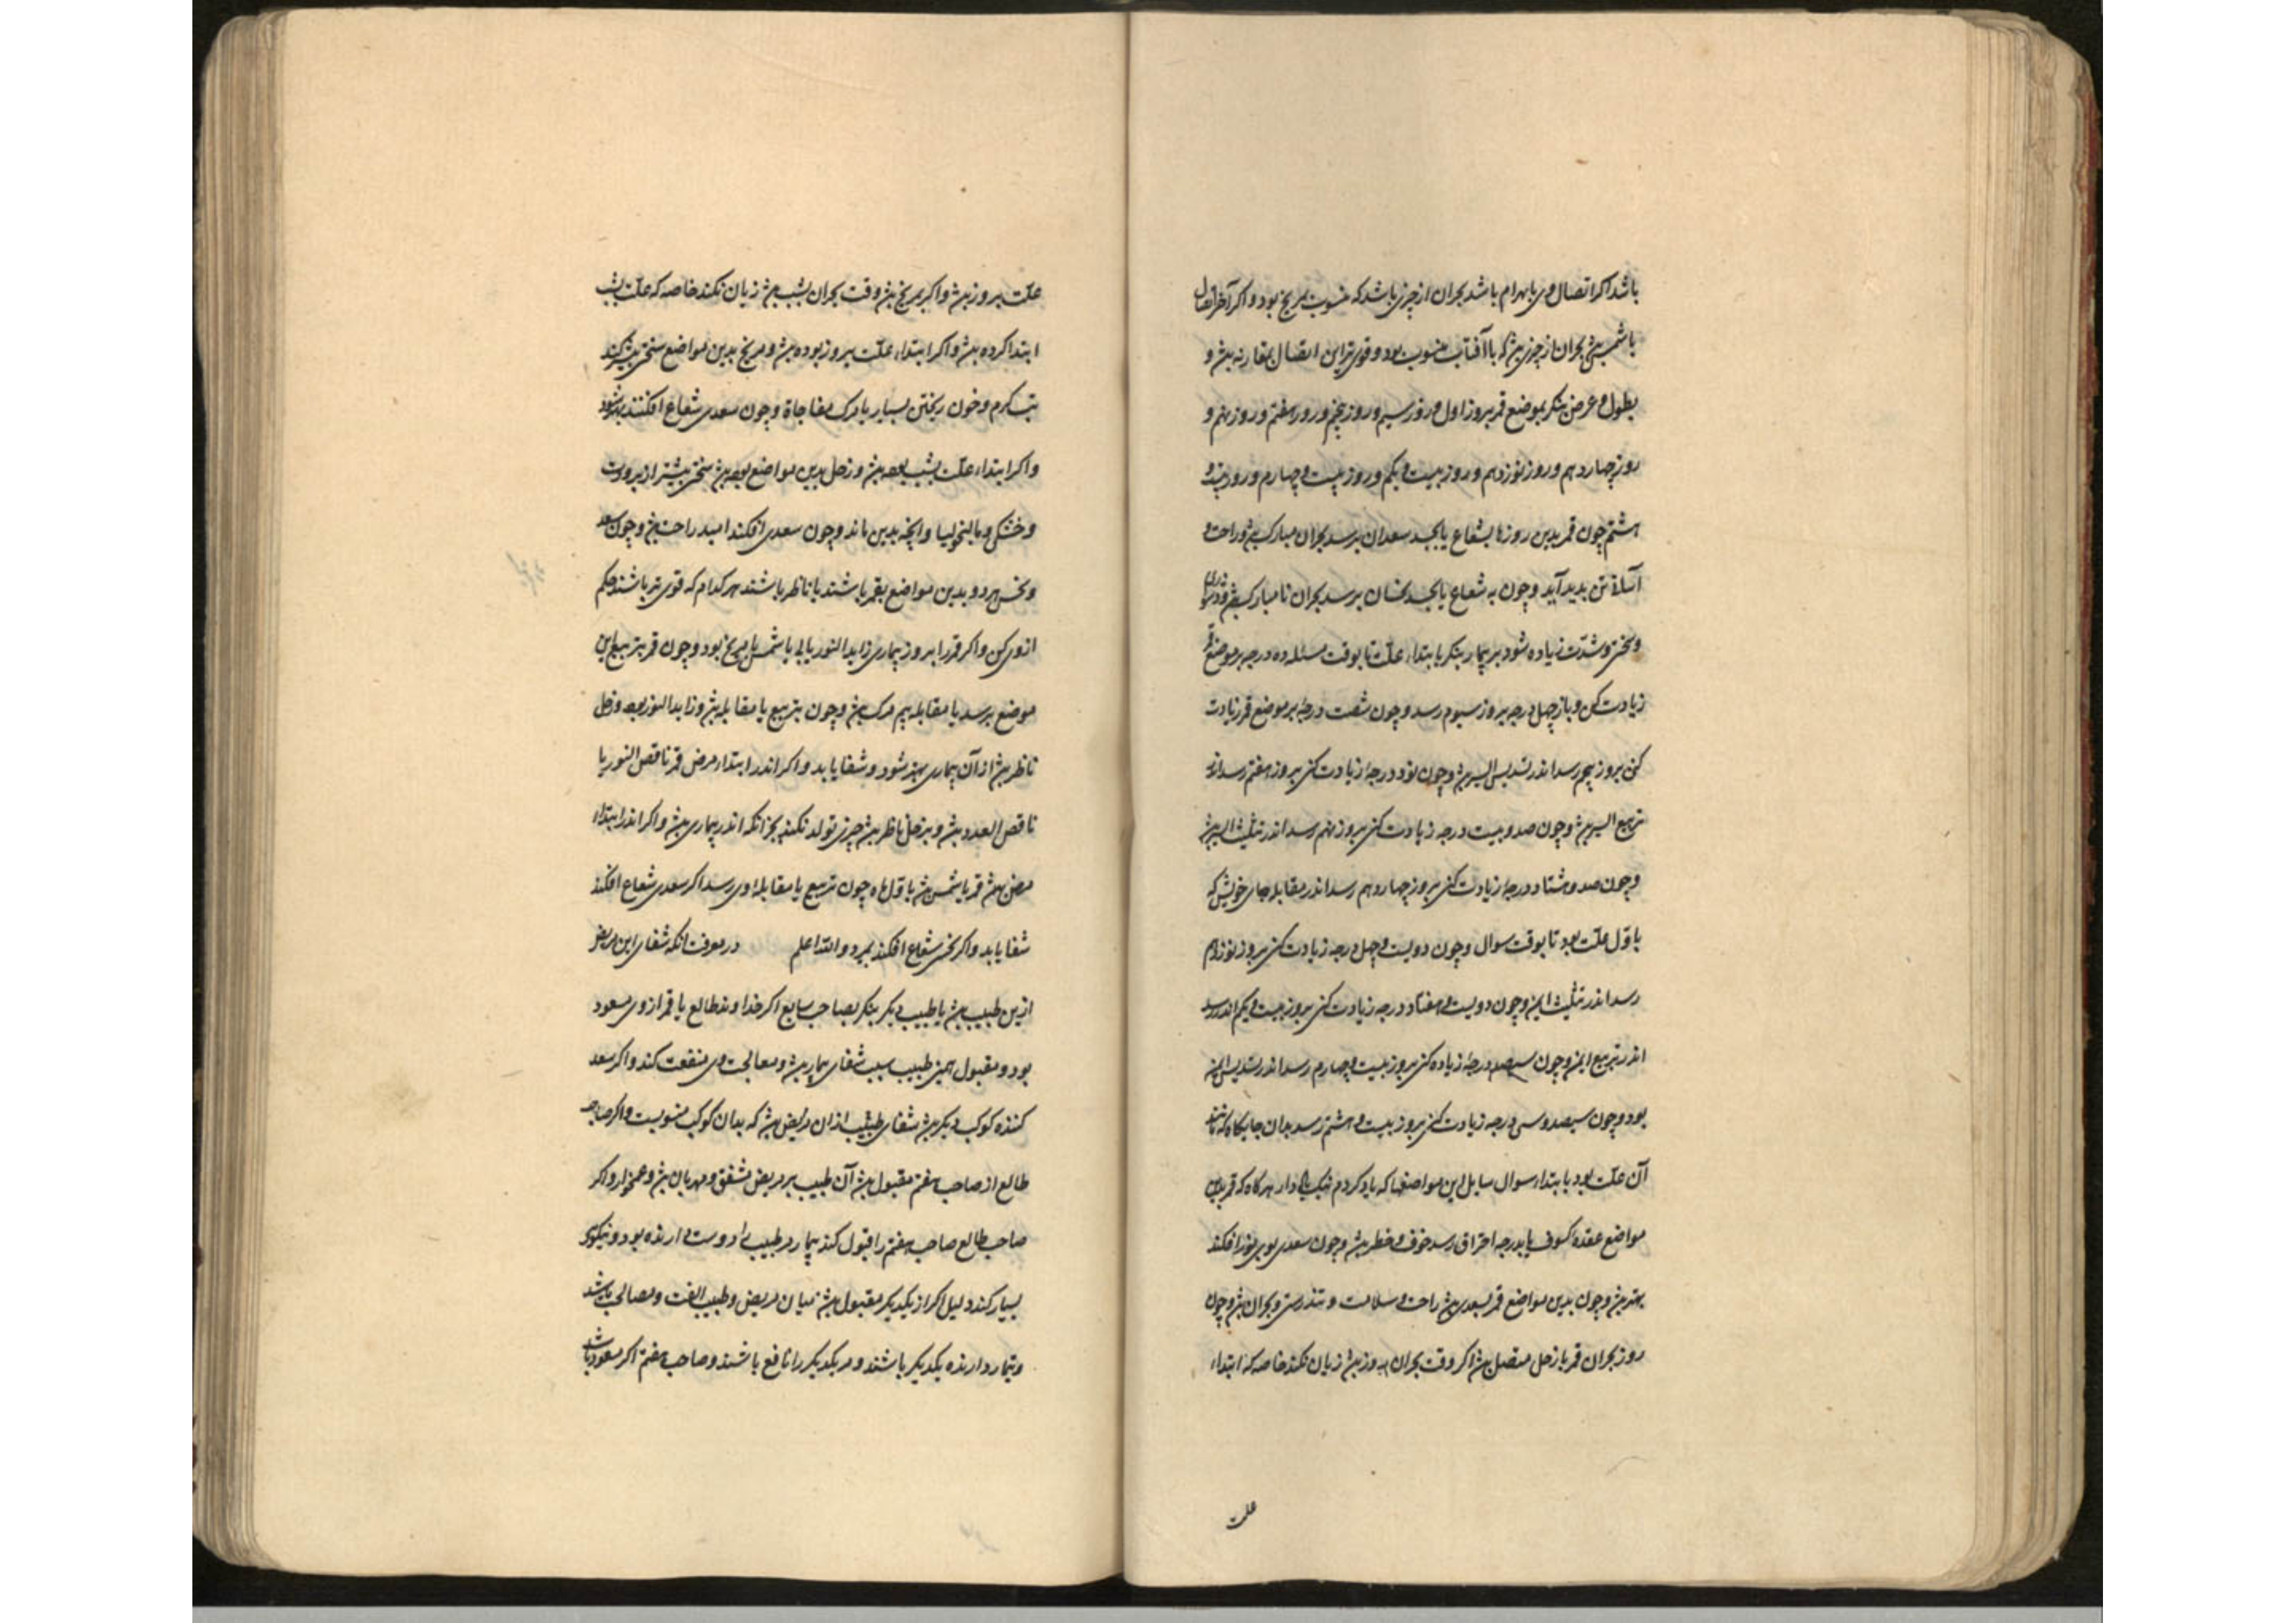 باشد اکر اتصال وی با بهرام باشد بحران از چیزی باشد که منسوب بمریخ بود و اکر آخر اتصال
با شمس بحران از چیزی که با آفتاب منسوب بود و قوی‌تر این اتصال مقارنه و
بطول و عرض بنکر بموضع قمر بروز اول و روز سیم و روز پنجم و روز هفتم و روز نهم و
روز چهاردهم و روز نوزدهم و روز بیست و یکم و روز بیست و چهارم و روز
هشتم چون قمر بدین روزها بشعاع یا بجسد سعدان برسد بحران مبارک و راحت و
آسانی تن بدید آید و چون به شعاع یا بجسد نحسان برسد بحران نامبارک
و سختی و شدّت زیاده شود بر بیمار بنکر بابتداء علّت تا بوقت مسئله ده درجه بر موضع
زیادت کن و باز چهل درجه بروز سیوم رسد و چون شصت درجه بر موضع قمر زیادت
کنی بروز پنجم رسد اندر تسدیس الیسر و چون نود درجه زیادت کنی بروز هفتم رسد اندر
تربیع الیسر و چون صد و بیست درجه زیادت کنی بروز نهم رسد اندر تثلیث الیسر
و چون صد و هشتاد درجه زیادت کنی بروز چهاردهم رسد اندر مقابله جای خویش که
باوّل علّت بود تا بوقت سوال و چون دویست و چهل درجه زیادت کنی بروز نوزدهم
رسد اندر تثلیث ایمن و چون دویست و هفتاد درجه زیادت کنی بروز بیست و یکم اندر رسد
اندر تربیع ایمن و چون سیصد درجه زیاده کنی بروز بیست و چهارم رسد اندر تسدیس ایمن
بود و چون سیصد و سی درجه زیادت کنی بروز بیست و هشتم رسد بدان جایکاه که
آن علّت بود یا ابتداء سوال سایل این مواضعها که یاد کردم نیک دار هرکاه که قمر بدین
مواضع عقدهٔ کسوف یا بدرجه احتراق رسد خوف و خطر و چون سعدی بوی نور افکند
بهتر و چون بدین مواضع قمر بسعدی راحت و سلامت و تندرستی و بحران و چون
روز بحران قمر با زحل متصل اکر وقت بحران بروز زیان نکند خاصه که ابتداء
علت
علّت بروز و اکر بمریخ وقت بحران بشب زیان نکند خاصه که علّت بشب
ابتدا کرده و اکر ابتداء علّت بروز بوده و مریخ بدین مواضع سختی بیشتر کند
تب کرم و خون ریختن بسیار یا مرک مفاجاة و چون سعدی شعاع افکند بهتر شود
و اکر ابتداء علّت بشب بوده و زحل بدین مواضع بود سختی بیشتر از برودت
و خشکی و مالیخولیا و آنچه بدین ماند و چون سعدی افکند امید راحت و چون سعد
و نحس هر دو بدین مواضع بقمر باشند یا ناظر باشند هر کدام که قوی‌تر باشند حکم
از وی کن و اکر قمر را بروز بیماری زاید النور یابی با شمس یا مریخ بود و چون قمر بتربیع این
موضع برسد یا مقابله بیم مرک و چون بتربیع یا مقابله و زاید النور بود و زحل
ناظر از آن بیماری بهتر شود و شفا یابد و اکر اندر ابتداء مرض قمر ناقص النور یا
ناقص العدد و بزحل ناظر چیزی تولد نکند بجز آنکه اندر بیماری و اکر اندر ابتداء
مرض قمر با شمس باوّل ماه چون تربیع یا مقابلهٔ وی رسد اکر سعدی شعاع افکند
شفا یابد و اکر نحسی شعاع افکند بمیرد واللّه اعلم در معرفت آنکه شفای این مریض
ازین طبیب یا طبیب دیکر بنکر بصاحب سابع اکر خداوند طالع یا قمر از وی مسعود
بود و مقبول همین طبیب سبب شفای بیمار و معالجت وی منفعت کند و اکر سعد
کننده کوکب دیکر شفای از آن مریض که بدان کوکب منسوبست و اکر صاحب
طالع از صاحب هفتم مقبول آن طبیب بر مریض مشفق و مهربان و غمخوار و اکر
صاحب طالع صاحب هفتم را قبول کند بیمار مر طبیب را دوست دارنده بود و نیکوی
بسیار کند دلیل اکر از یکدیکر مقبول میان مریض و طبیب الفت و مصالحت باشد
و تیمار دارنده یکدیکر باشند و مر یکدیکر را نافع باشند و صاحب هفتم اکر مسعود باشد